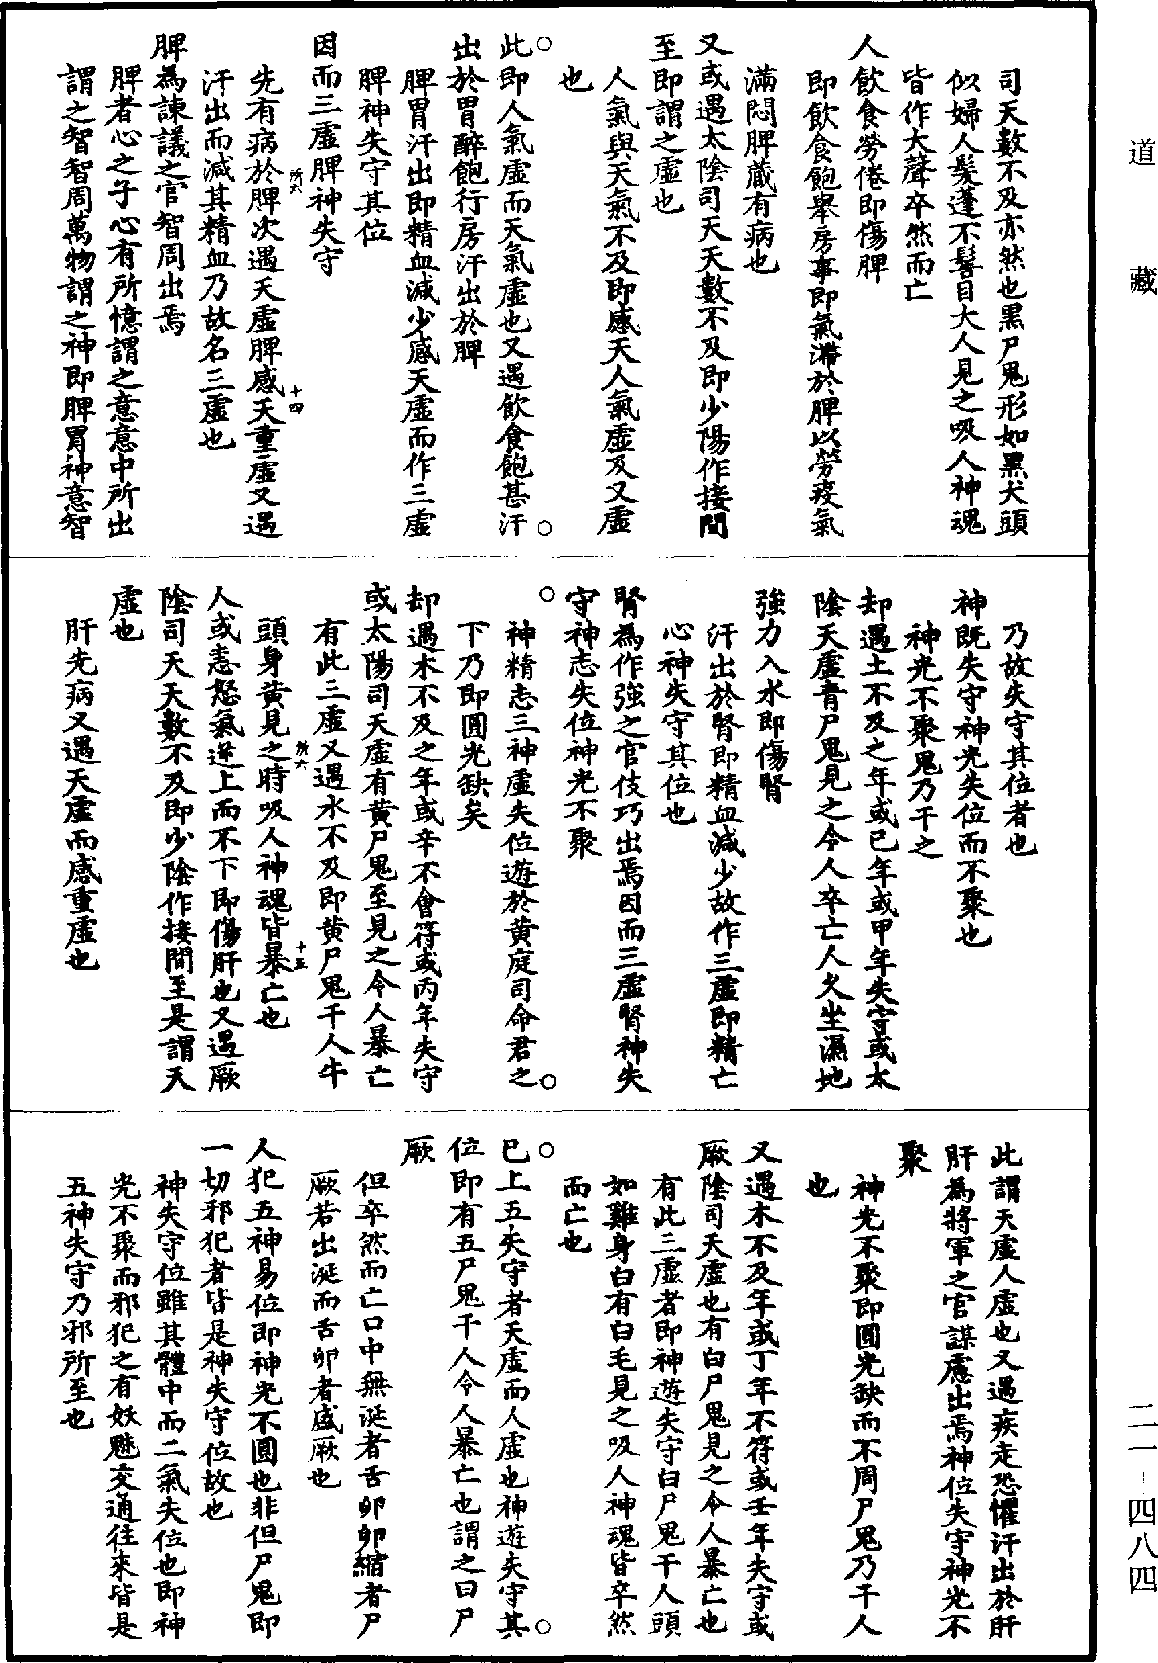 道藏
司天數不及亦然也黑尸鬼形如黑犬頭
似婦人髮蓬不髻目大人見之吸人神魂
皆作大聲卒然而亡
人飲食勞倦即傷脾
即飲食飽舉房事即氣滯於脾以勞疲氣
滿悶脾藏有病也
又或遇太陰司天天數不及即少陽作接間
至即謂之虛也
人氣與天氣不及即感天人氣虛及又虛
也
此即人氣虛而天氣虛也又遇飲食飽甚汗
出於胃醉飽行房汗出於脾
脾胃汗出即精血減少感天虛而作三虛
脾神失守其位
因而三虛脾神失守
所六 十四
先有病於脾次遇天虛脾感天重虛又遇
汗出而減其精血乃故名三虛也
脾為諫議之官智周出焉
脾者心之子心有所憶謂之意意中所出
謂之智智周萬物謂之神即脾胃神意智
乃故失守其位者也
神既失守神光失位而不聚也
神光不聚鬼乃干之
却遇土不及之年或已年或甲年失守或太
陰天虛青尸鬼見之令人卒亡人久坐濕地
強力入水即傷腎
汗出於腎即精血減少故作三虛即精亡
心神失守其位也
腎為作強之官伎巧出焉因而三虛腎神失
守神志失位神光不聚
神精志三神虛失位遊於黃庭司命君之
下乃即圓光缺矣
却遇水不及之年或辛不會符或丙年失守
或太陽司天虛有黃尸鬼至見之令人暴亡
有此三虛又遇水不及即黃尸鬼干人牛
所六 十五
頭身黃見之時吸人神魂皆暴亡也
人或恚怒氣逆上而不下即傷肝也又遇厥
陰司天天數不及即少陰作接間至是謂天
虛也
肝先病又遇天虛而感重虛也
此謂天虛人虛也又遇疾走恐懼汗出於肝
肝為將軍之官謀慮出焉神位失守神光不
聚
神光不聚即圓光缺而不周尸鬼乃干人
也
又遇木不及年或丁年不符或壬年失守或
厥陰司天虛也有白尸鬼見之令人暴亡也
有此三虛者即神遊失守白尸鬼干人頭
如雞身白有白毛見之吸人神魂皆卒然
而亡也
已上五失守者天虛而人虛也神遊失守其
位即有五尸鬼干人令人暴亡也謂之曰尸
厥
但卒然而亡口中無涎者舌卵卵縮者尸
厥若出涎而舌卵者感厥也
人犯五神易位即神光不圓也非但尸鬼即
一切邪犯者皆是神失守位故也
神失守位雖其體中而二氣失位也即神
光不聚而邪犯之有妖魅交通往來皆是
五神失守乃邪所至也
二一─四八四